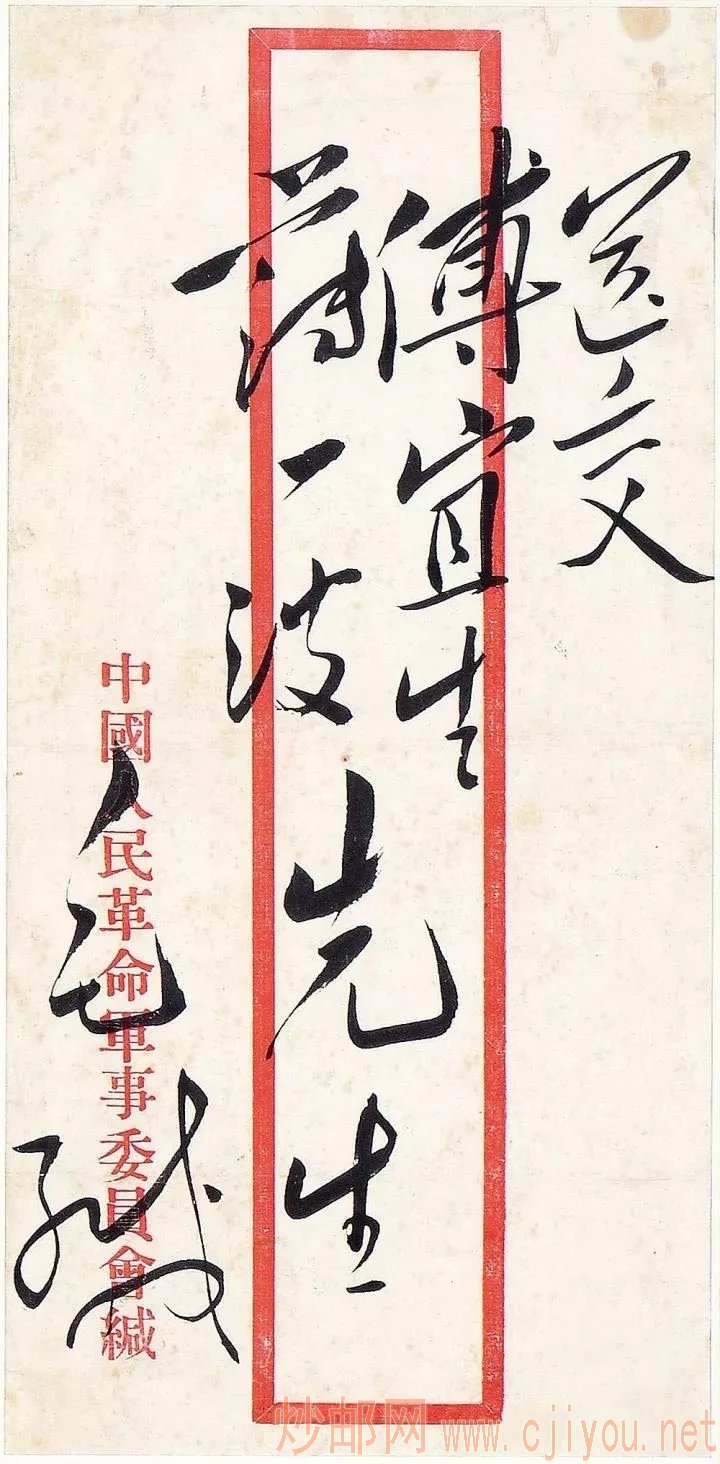 送交
傅宜生
薄一波先生
毛缄
中國人民革命軍事委員會緘
炒邮网 www.cjiyou.net